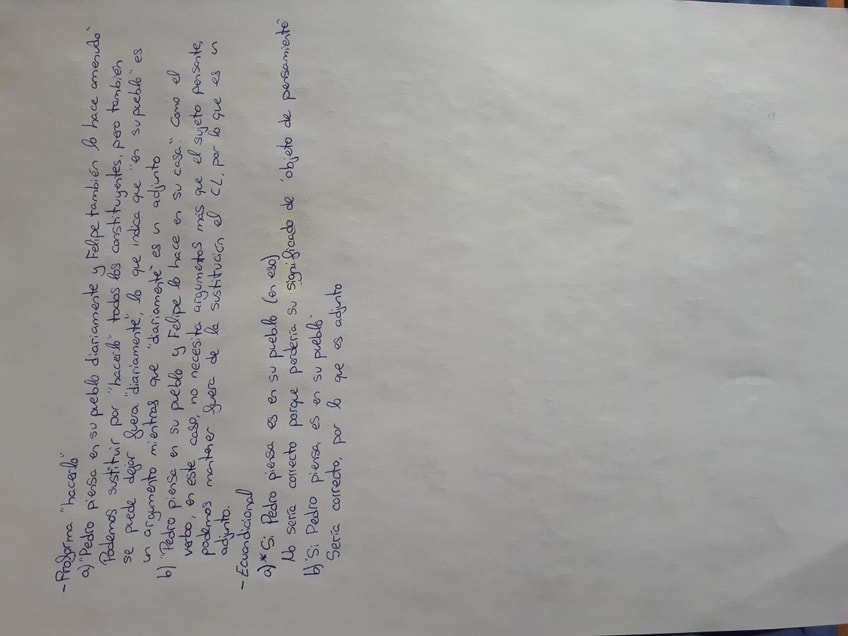 - Proforma "hacerlo"
a) "Pedro piensa en su pueblo diariamente y Felipe también lo hace amenudo"
Podemos sustituir por "hacerlo" todos los constituyentes, pero también
se puede dejar fuera "diariamente", lo que indica que "en su pueblo" es
un argumento mientras que "diariamente" es un adjunto
b) "Pedro piensa en su pueblo y Felipe lo hace en su casa". Como el
verbo, en este caso, no necesita argumentos más que el sujeto pensante,
podemos mantener fuera de la sustitución el CL, por lo que es un
adjunto.
- Ecuandicional
a) * Si Pedro piensa es en su pueblo (en eso)
No sería correcto porque perdería su significado de "objeto de pensamiento"
b) "Si Pedro piensa es en su pueblo"
Sería correcto, por lo que es adjunto